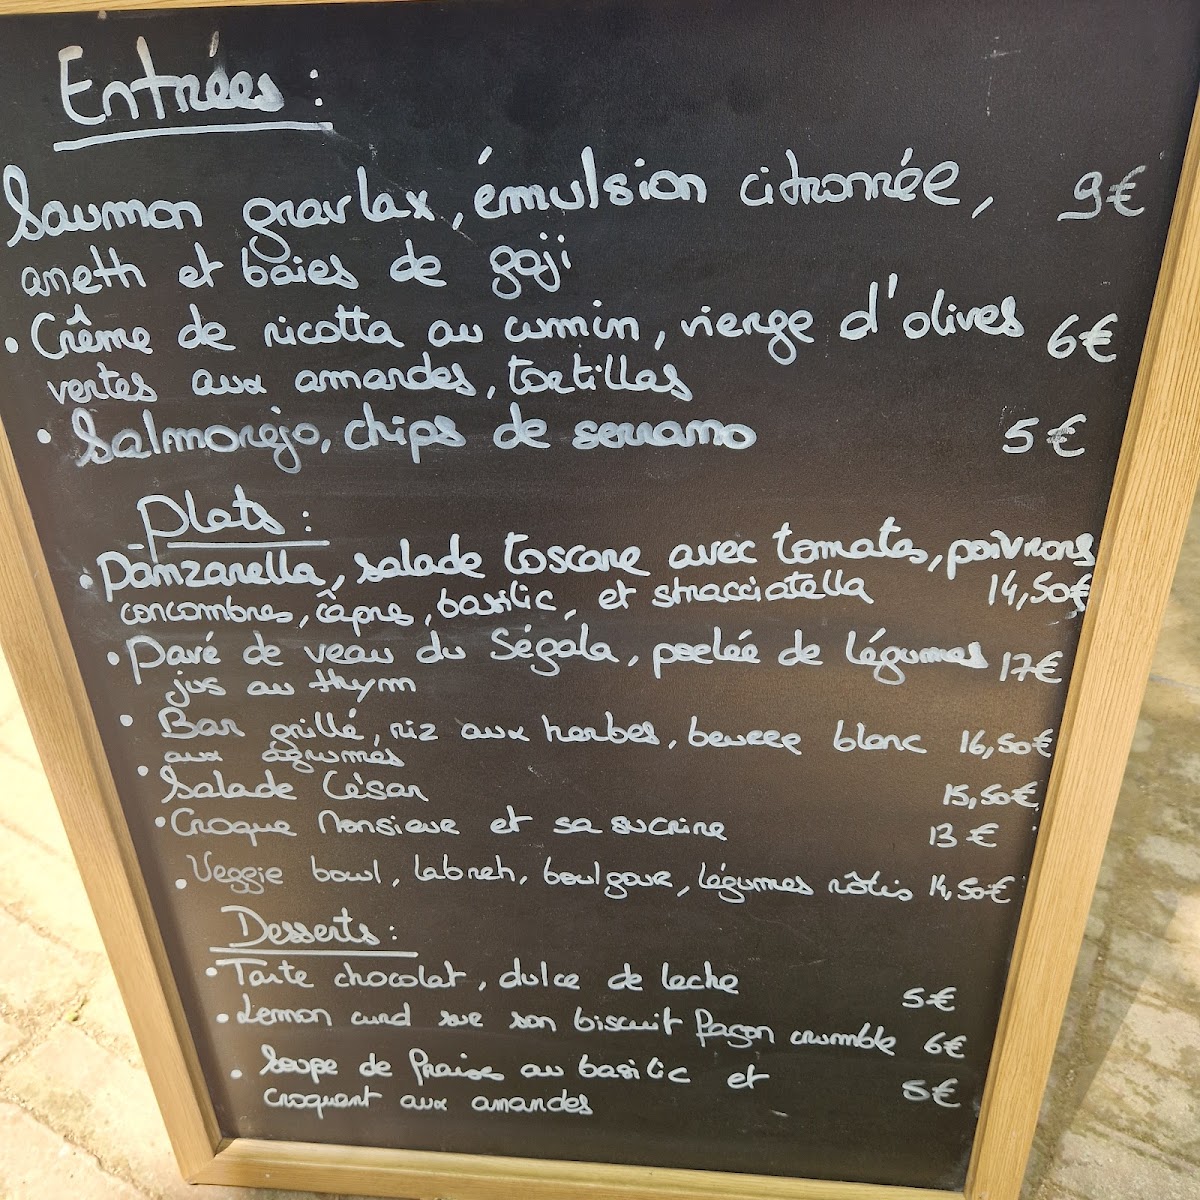 Entrées :
Saumon gravlax, émulsion citronnée, 9€
aneth et baies de goji
• Crème de ricotta au cumin, vierge d'olives 6€
vertes aux amandes, tortillas
• Salmorejo, chips de serrano 5€
Plats :
• Panzanella, salade toscane avec tomates, poivrons
concombres, câpres, basilic, et stracciatella 14,50€
• Pavé de veau du Ségala, poelée de légumes 17€
jus au thym
• Bar grillé, riz aux herbes, beurre blanc 16,50€
aux agrumes
• Salade César 15,50€
• Croque Monsieur et sa sucrine 13€
• Veggie bowl, labneh, boulgour, légumes rôtis 14,50€
Desserts :
• Tarte chocolat, dulce de leche 5€
• Lemon curd sur son biscuit façon crumble 6€
• Soupe de fraises au basilic et 5€
croquant aux amandes